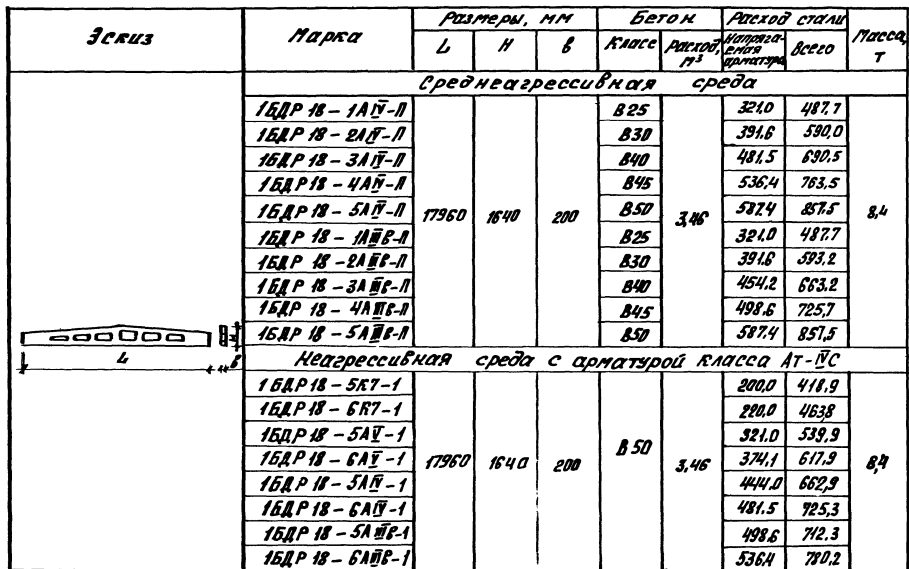 Эскиз Марка Размеры, мм Бетон Расход стали Масса, т
L H в Класс Расход, м³ Напрягаемая арматура Всего
Среднеагрессивная среда
1БДР 18 – 1АIV-П 17960 1640 200 В25 3,46 321,0 487,7 8,4
1БДР 18 – 2АIV-П В30 391,6 590,0
1БДР 18 – 3АIV-П В40 481,5 690,5
1БДР 18 – 4АIV-П В45 536,4 763,5
1БДР 18 – 5АIV-П В50 587,4 857,5
1БДР 18 – 1АIIIв-П В25 321,0 487,7
1БДР 18 – 2АIIIв-П В30 391,6 593,2
1БДР 18 – 3АIIIв-П В40 454,2 663,2
1БДР 18 – 4АIIIв-П В45 498,6 725,7
1БДР 18 – 5АIIIв-П В50 587,4 857,5
L в
Неагрессивная среда с арматурой класса Ат-IVС
1БДР 18 – 5К7-1 17960 1640 200 В50 3,46 200,0 418,9 8,4
1БДР 18 – 6К7-1 220,0 463,8
1БДР 18 – 5АV-1 321,0 539,9
1БДР 18 – 6АV-1 374,1 617,9
1БДР 18 – 5АIV-1 444,0 662,9
1БДР 18 – 6АIV-1 481,5 725,3
1БДР 18 – 5АIIIв-1 498,6 712,3
1БДР 18 – 6АIIIв-1 536,4 780,2